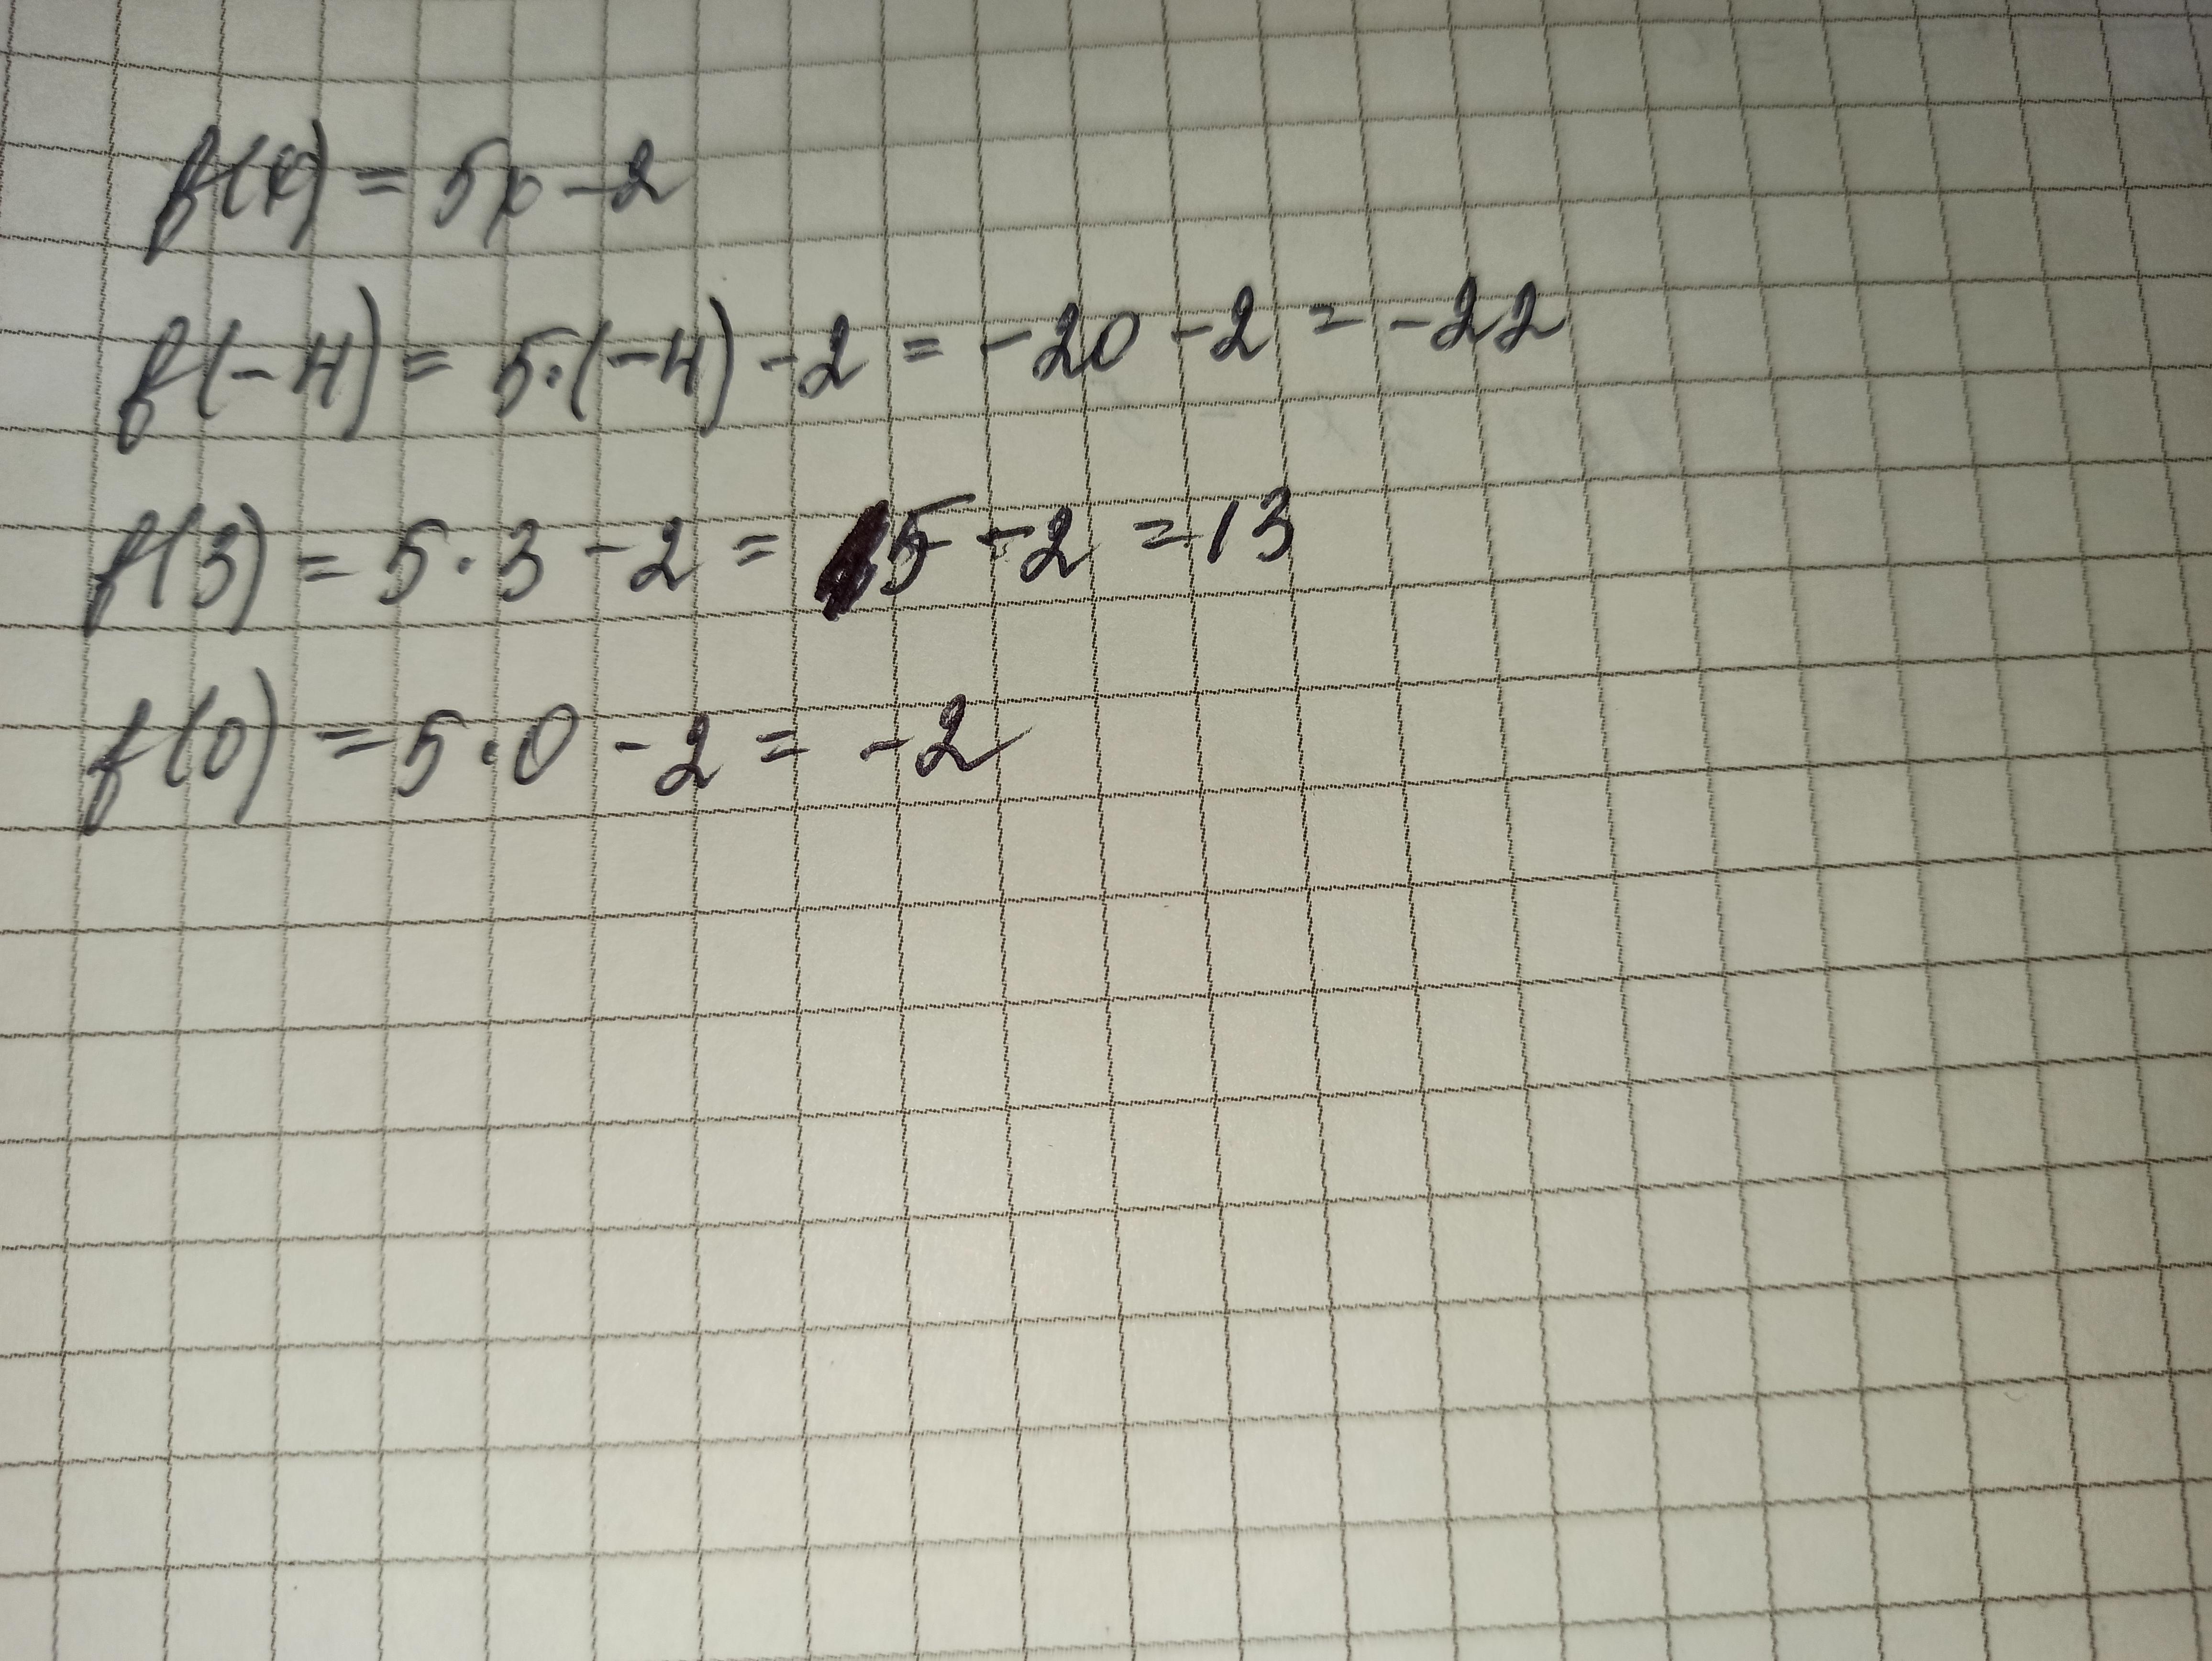 f(x) = 5x - 2
f(-4) = 5·(-4) - 2 = -20 - 2 = -22
f(3) = 5·3 - 2 = 15 - 2 = 13
f(0) = 5·0 - 2 = -2